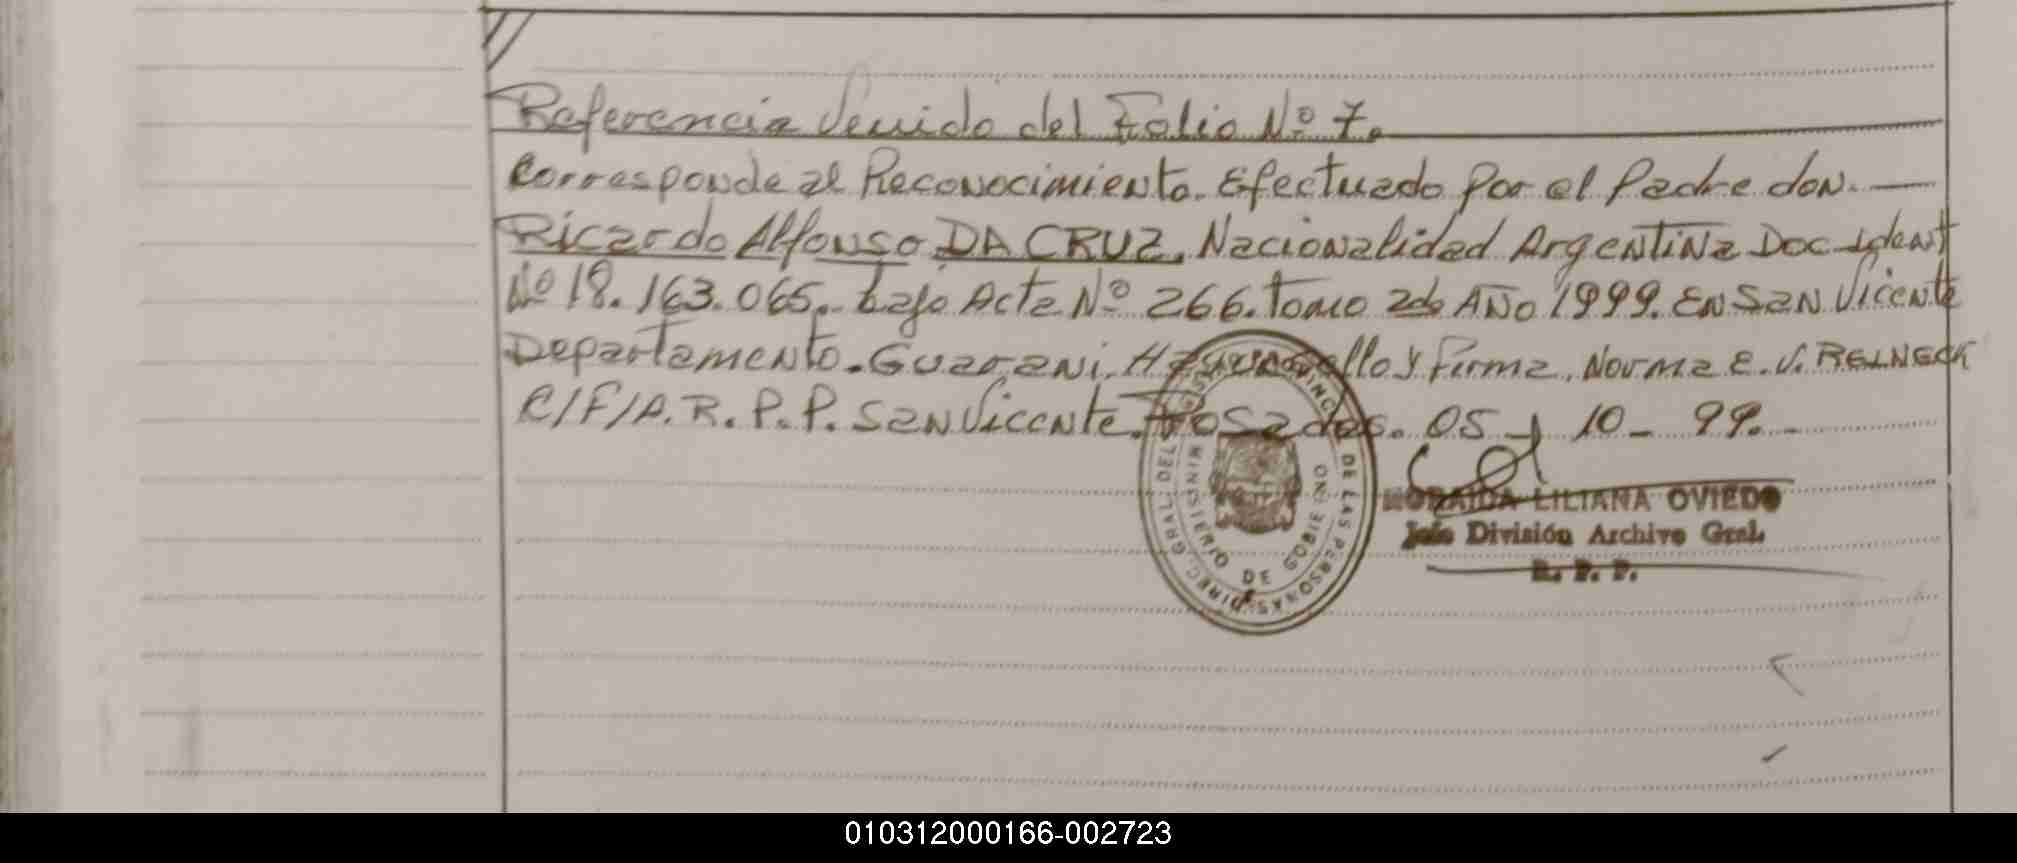 Referencia Venido del Folio Nº 7.
Corresponde al Reconocimiento. Efectuado Por el Padre don.
Ricardo Alfonso DA CRUZ, Nacionalidad Argentina Doc. Ident
Nº 18.163.065. bajo Acta Nº 266. Tomo 2do Año 1999. EN SAN Vicente
Departamento. Guarani. Hay un sello y Firma. Norma E. V. REINECK
E/F/A. R. P. P. San Vicente. Posadas. 05 - 10 - 99.
DIREC. GRAL. DEL DE LAS PERSONAS
MINISTERIO DE GOBIERNO
LILIANA OVIEDO
Jefe División Archivo Gral.
R. P. P.
010312000166-002723